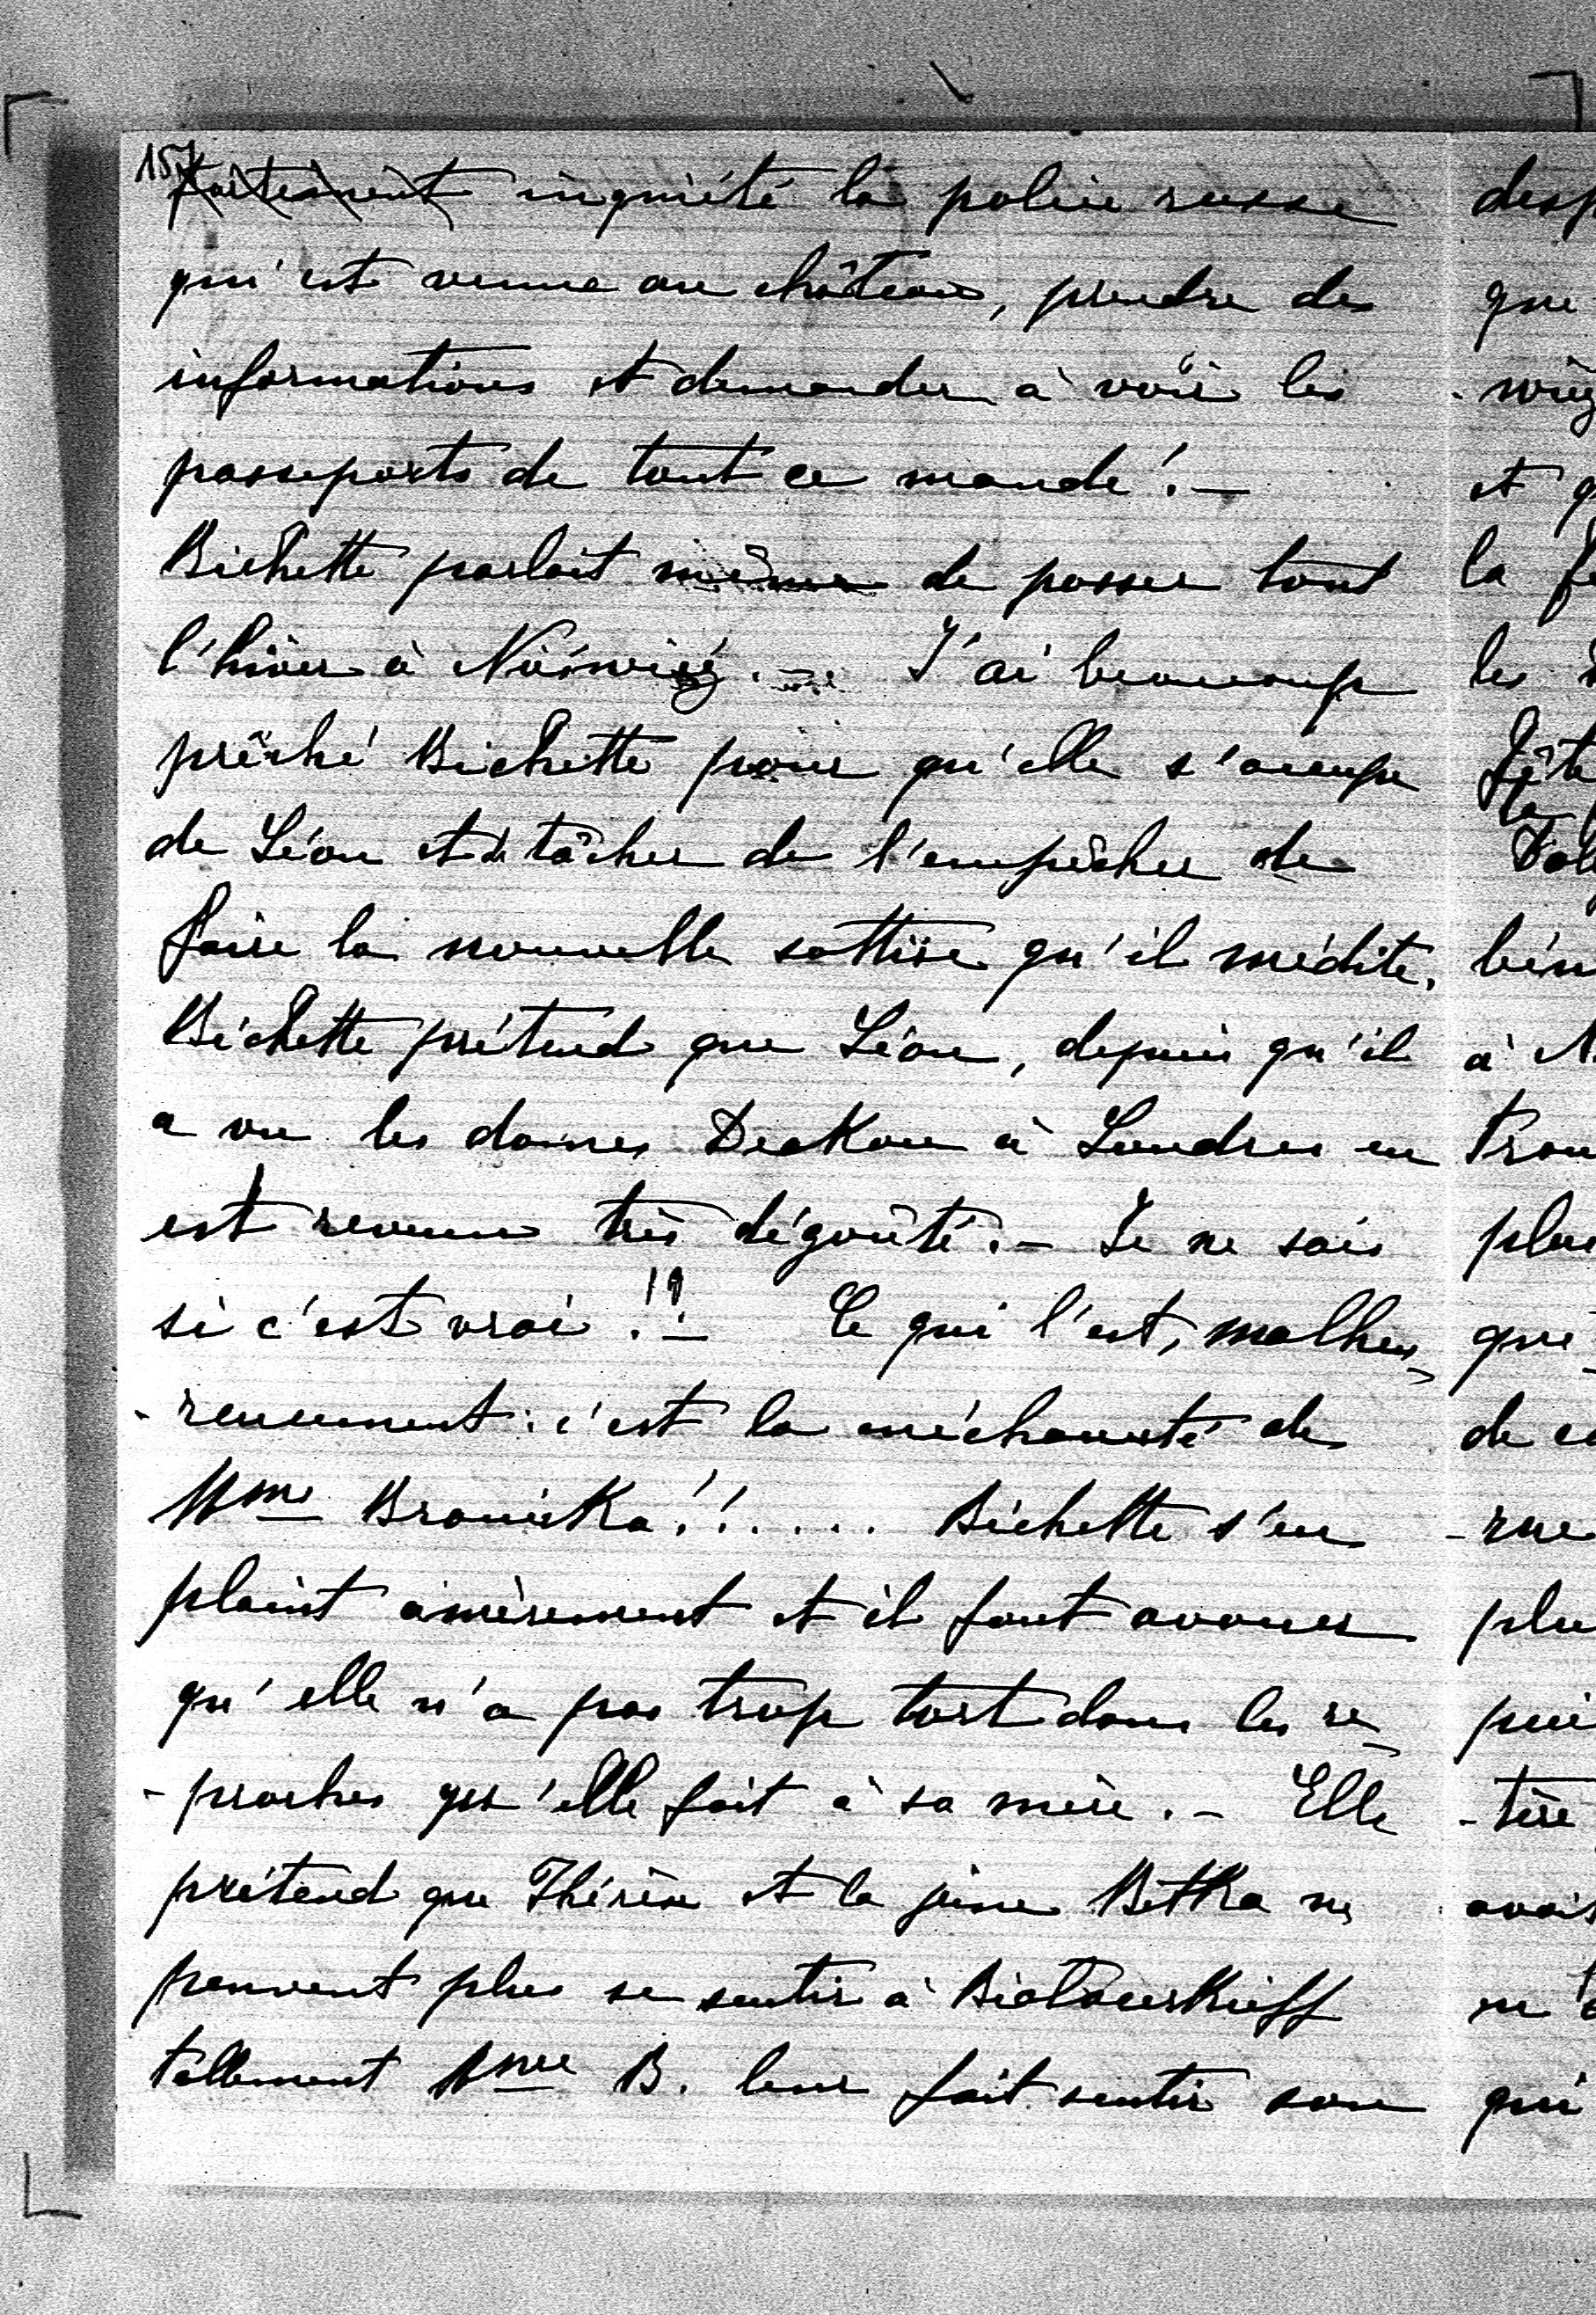 157
fortement inquiété la police russe
qui est venue au château, prendre des
informations et demander à voir les
passeports de tout ce monde! —
Bichette parlait même de passer tout
l'hiver à Nieświeź. — J'ai beaucoup
prêché Bichette pour qu'elle s'occupe
de Léon et de tâcher de l'empêcher de
faire la nouvelle sottise qu'il médite.
Bichette prétend que Léon, depuis qu'il
a vu les dames Deakon à Londres en
est revenu très dégoûté. — Je ne sais
si c'est vrai !! — Ce qui l'est, malheu-
-reusement: c'est la méchanceté de
Mme Branicka!!.... Bichette s'en
plaint amèrement et il faut avouer
qu'elle n'a pas trop tort dans les re-
-proches qu'elle fait à sa mère. — Elle
prétend que Thérèse et la jeune Betka ne
peuvent plus se sentir à Biatocerkieff
tellement Mme B. leur fait sentir son